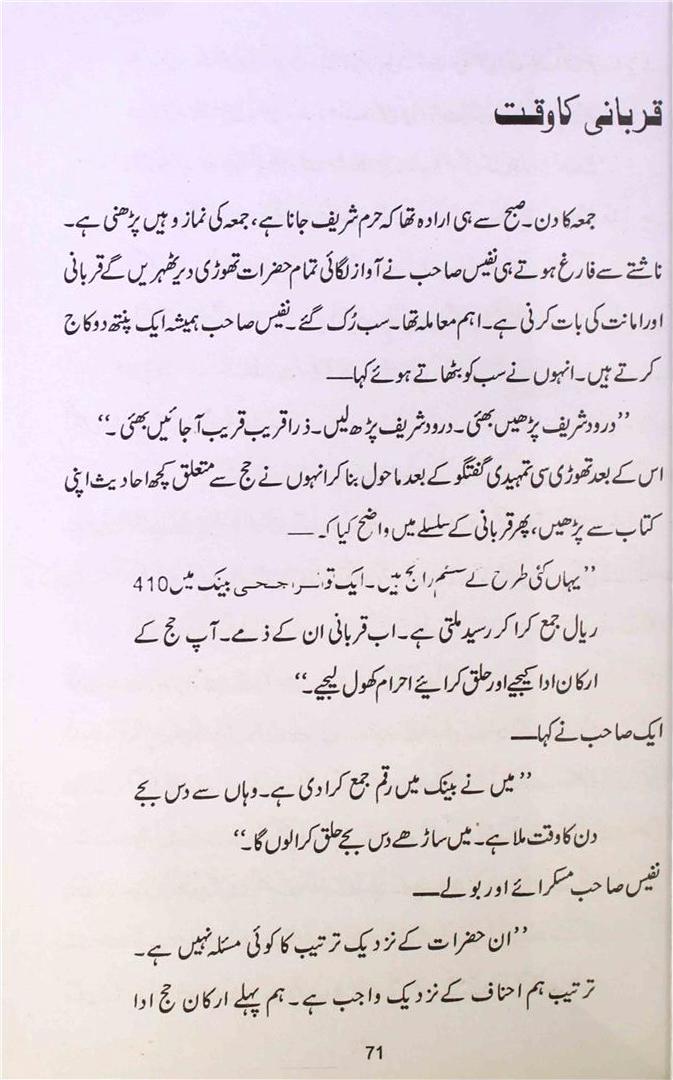 قربانی کا وقت
جمعہ کا دن۔ صبح سے ہی ارادہ تھا کہ حرم شریف جانا ہے، جمعہ کی نماز وہیں پڑھنی ہے۔
ناشتے سے فارغ ہوتے ہی نفیس صاحب نے آواز لگائی تمام حضرات تھوڑی دیر ٹھہریں گے قربانی
اور امانت کی بات کرنی ہے۔ اہم معاملہ تھا۔ سب رُک گئے۔ نفیس صاحب ہمیشہ ایک پنتھ دو کاج
کرتے ہیں۔ انہوں نے سب کو بٹھاتے ہوئے کہا—
”درود شریف پڑھیں بھئی۔ درود شریف پڑھ لیں۔ ذرا قریب قریب آجائیں بھئی۔“
اس کے بعد تھوڑی سی تمہیدی گفتگو کے بعد ماحول بنا کر انہوں نے حج سے متعلق کچھ احادیث اپنی
کتاب سے پڑھیں، پھر قربانی کے سلسلے میں واضح کیا کہ —
”یہاں کئی طرح کے سسٹم رائج ہیں۔ ایک تو الراجحی بینک میں 410
ریال جمع کرا کر رسید ملتی ہے۔ اب قربانی ان کے ذمے۔ آپ حج کے
ارکان ادا کیجیے اور حلق کرائیے احرام کھول لیجیے۔“
ایک صاحب نے کہا—
”میں نے بینک میں رقم جمع کرا دی ہے۔ وہاں سے دس بجے
دن کا وقت ملا ہے۔ میں ساڑھے دس بجے حلق کرا لوں گا۔“
نفیس صاحب مسکرائے اور بولے—
”ان حضرات کے نزدیک ترتیب کا کوئی مسئلہ نہیں ہے۔
ترتیب ہم احناف کے نزدیک واجب ہے۔ ہم پہلے ارکان حج ادا
71